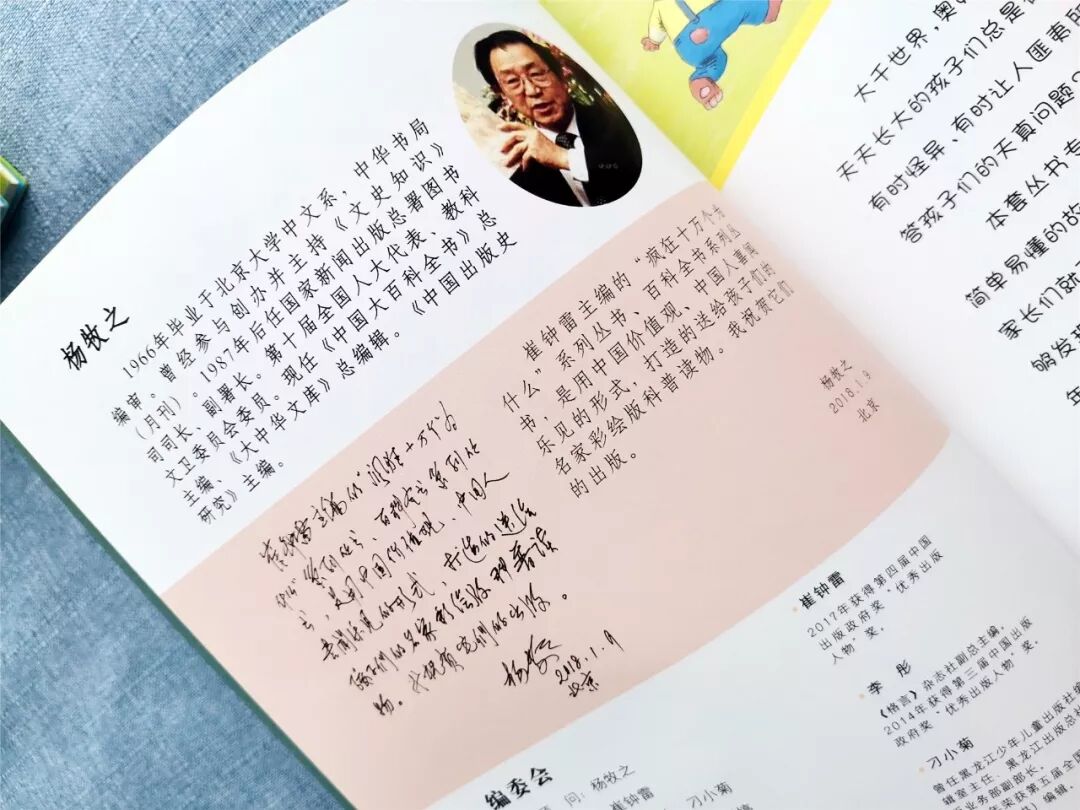 杨牧之
1966年毕业于北京大学中文系，中华书局
编审。曾经参与创办并主持《文史知识》
（月刊）。1987年后任国家新闻出版总署图书
司司长、副署长。第十届全国人大代表、教科
文卫委员会委员。现任《中国大百科全书》总
主编、《大中华文库》总编辑。《中国出版史
研究》主编。
崔钟雷主编的“疯狂十万个为
什么”系列丛书、百科全书系列丛
书，是用中国价值观、中国人喜闻
乐见的形式，打造的送给孩子们的
名家彩绘版科普读物。我祝贺它们
的出版。
杨牧之
2018.1.9
北京
崔钟雷主编的“疯狂十万个为
什么”系列丛书、百科全书系列丛
书，是用中国价值观、中国人
喜闻乐见的形式，打造的送给
孩子们的名家彩绘版科普读
物。我祝贺它们的出版。
杨牧之
2018.1.9
北京
大千世界，奥
天天长大的孩子们总是
有时怪异、有时让人匪夷所
答孩子们的天真问题？
本套丛书专
简单易懂的故
家长们就
够发现
年
崔钟雷
2017年获得第四届中国
出版政府奖“优秀出版
人物”奖。
李 彤
《格言》杂志社副总主编。
2014年获得第三届中国出版
政府奖“优秀出版人物”奖。
刁小菊
曾任黑龙江少年儿童出版社编
辑室主任、黑龙江出版总社
务部副部长。
获第五届全国
编辑
编委会
问：杨牧之
崔钟雷
刁小菊